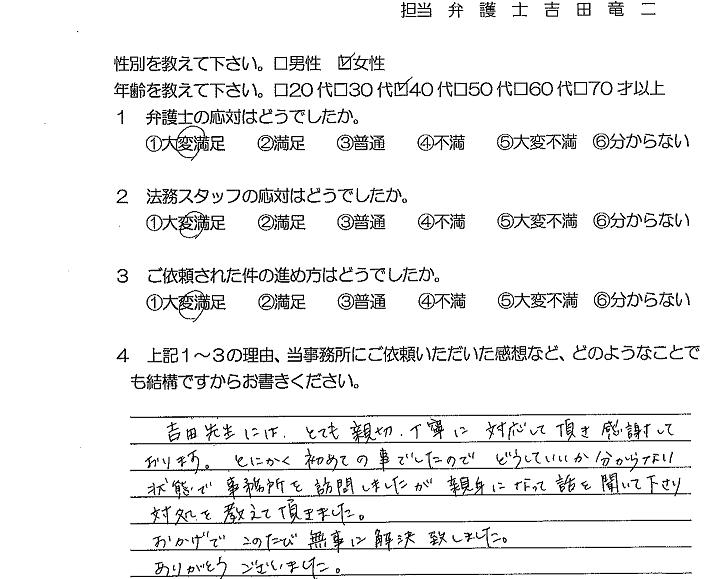 担当 弁 護 士 吉 田 竜 二
性別を教えて下さい。□男性 ☑女性
年齢を教えて下さい。□20代□30代☑40代□50代□60代□70才以上
1 弁護士の応対はどうでしたか。
①大変満足 ②満足 ③普通 ④不満 ⑤大変不満 ⑥分からない
2 法務スタッフの応対はどうでしたか。
①大変満足 ②満足 ③普通 ④不満 ⑤大変不満 ⑥分からない
3 ご依頼された件の進め方はどうでしたか。
①大変満足 ②満足 ③普通 ④不満 ⑤大変不満 ⑥分からない
4 上記1~3の理由、当事務所にご依頼いただいた感想など、どのようなことで
も結構ですからお書きください。
吉田先生には、とても親切、丁寧に対応して頂き感謝して
おります。とにかく初めての事でしたのでどうしていいか分からない
状態で事務所を訪問しましたが親身になって話を聞いて下さり
対処を教えて頂きました。
おかげでこのたび無事に解決致しました。
ありがとうございました。